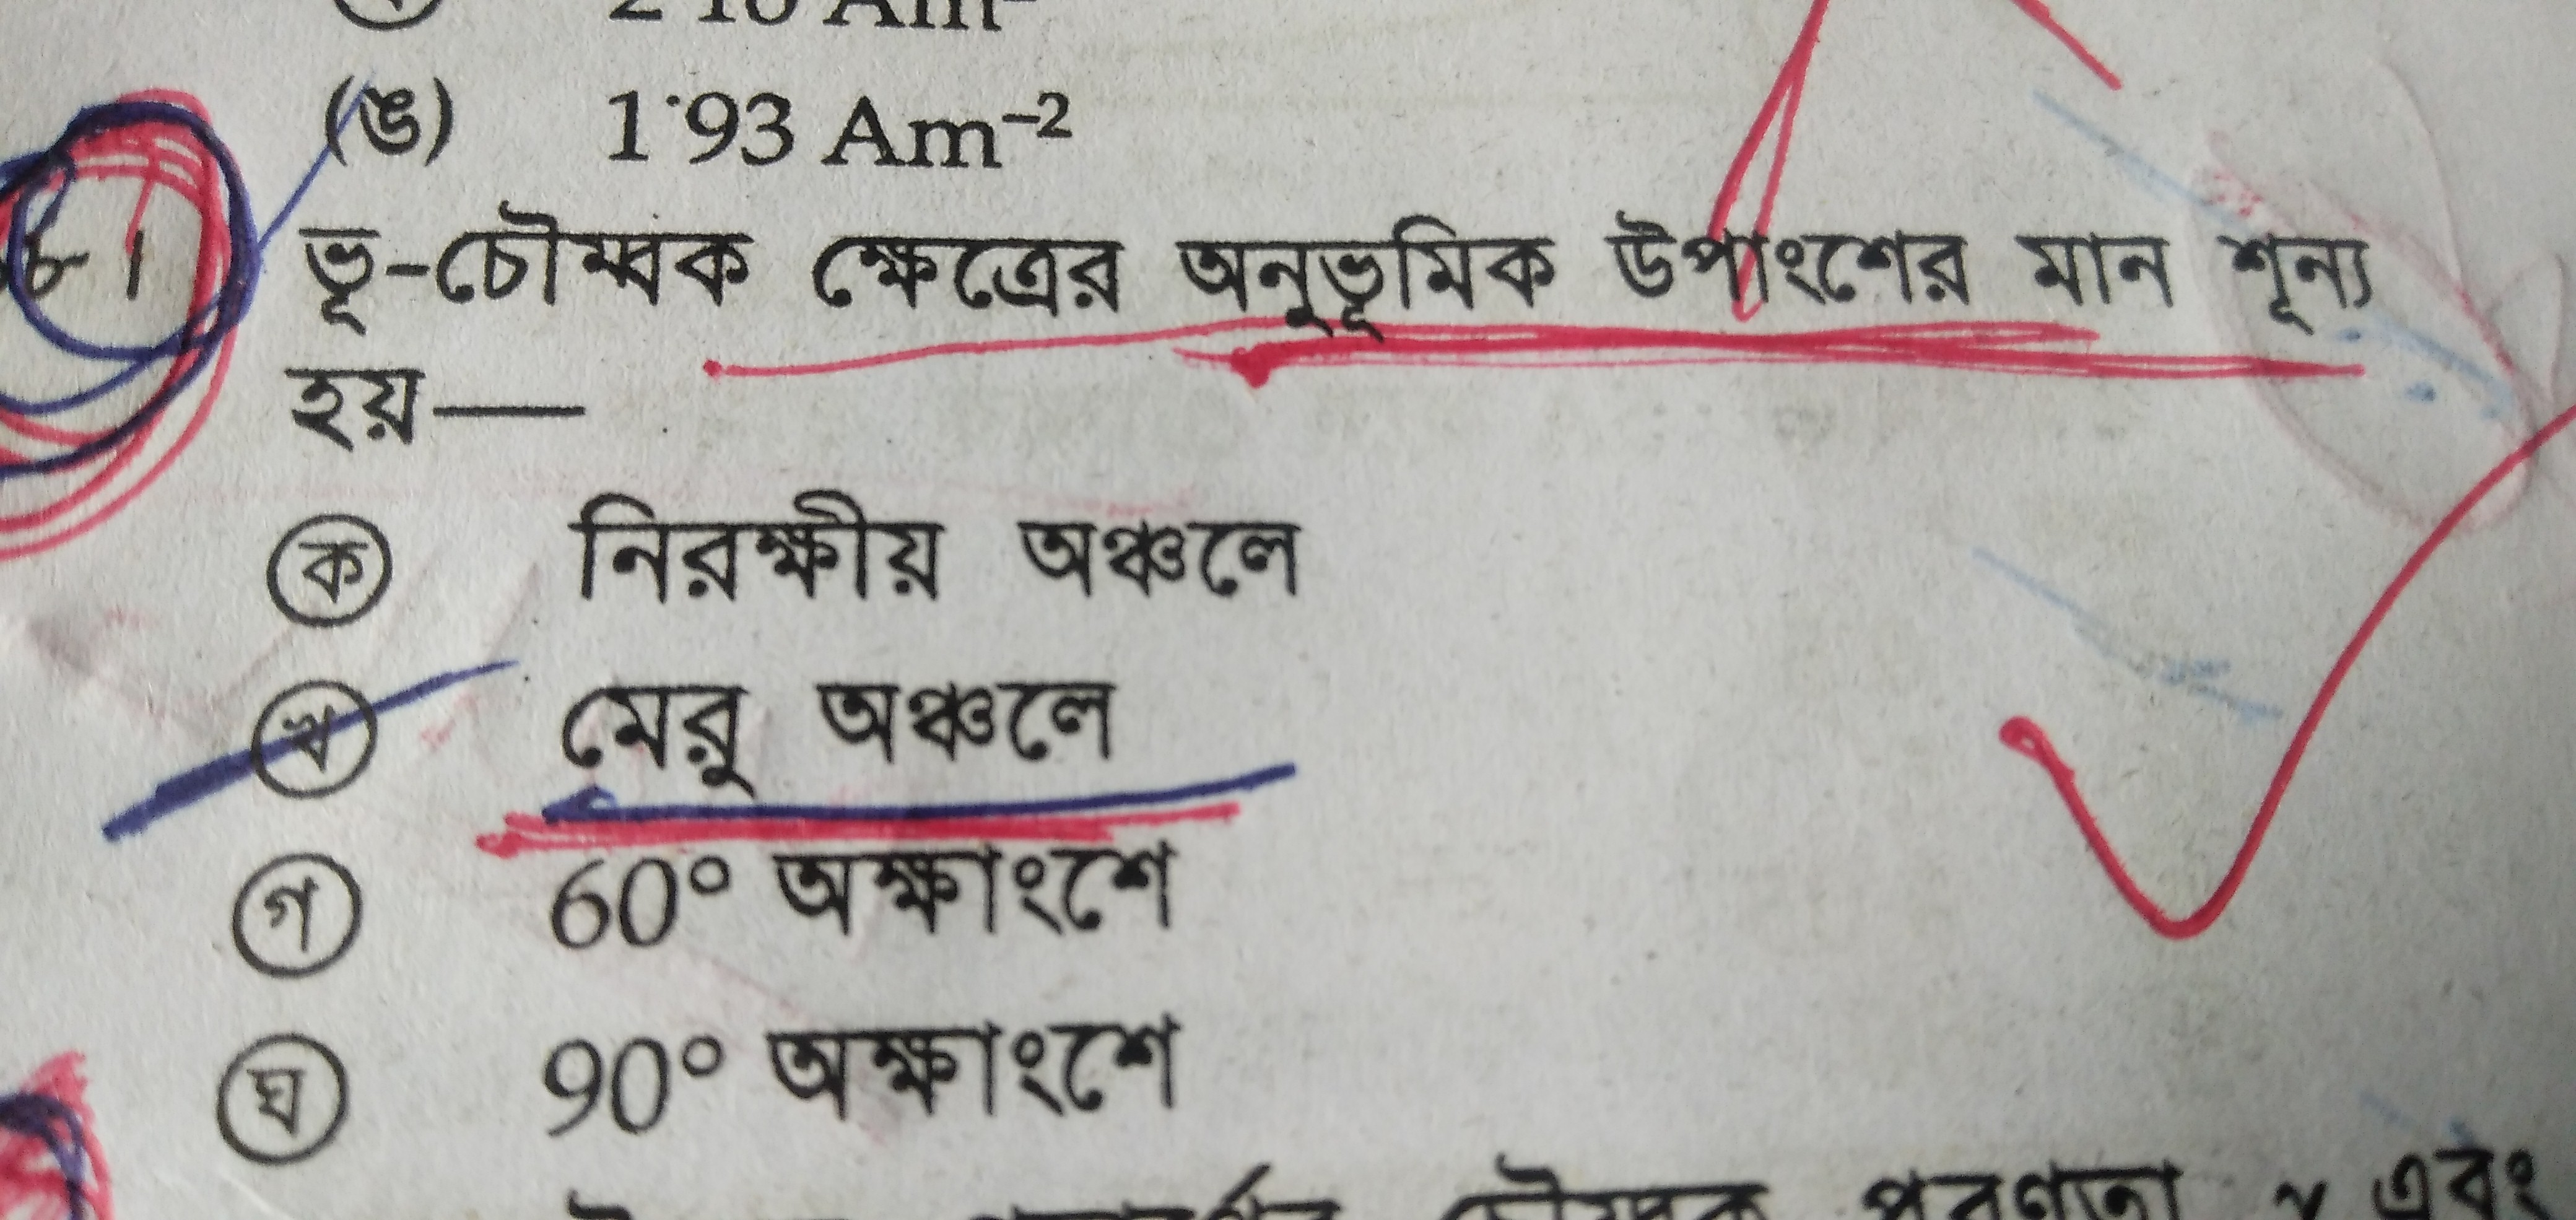 (ঙ) 1·93 Am⁻²
৮। ভূ-চৌম্বক ক্ষেত্রের অনুভূমিক উপাংশের মান শূন্য
হয়—
ক নিরক্ষীয় অঞ্চলে
খ মেরু অঞ্চলে
গ 60° অক্ষাংশে
ঘ 90° অক্ষাংশে
এবং